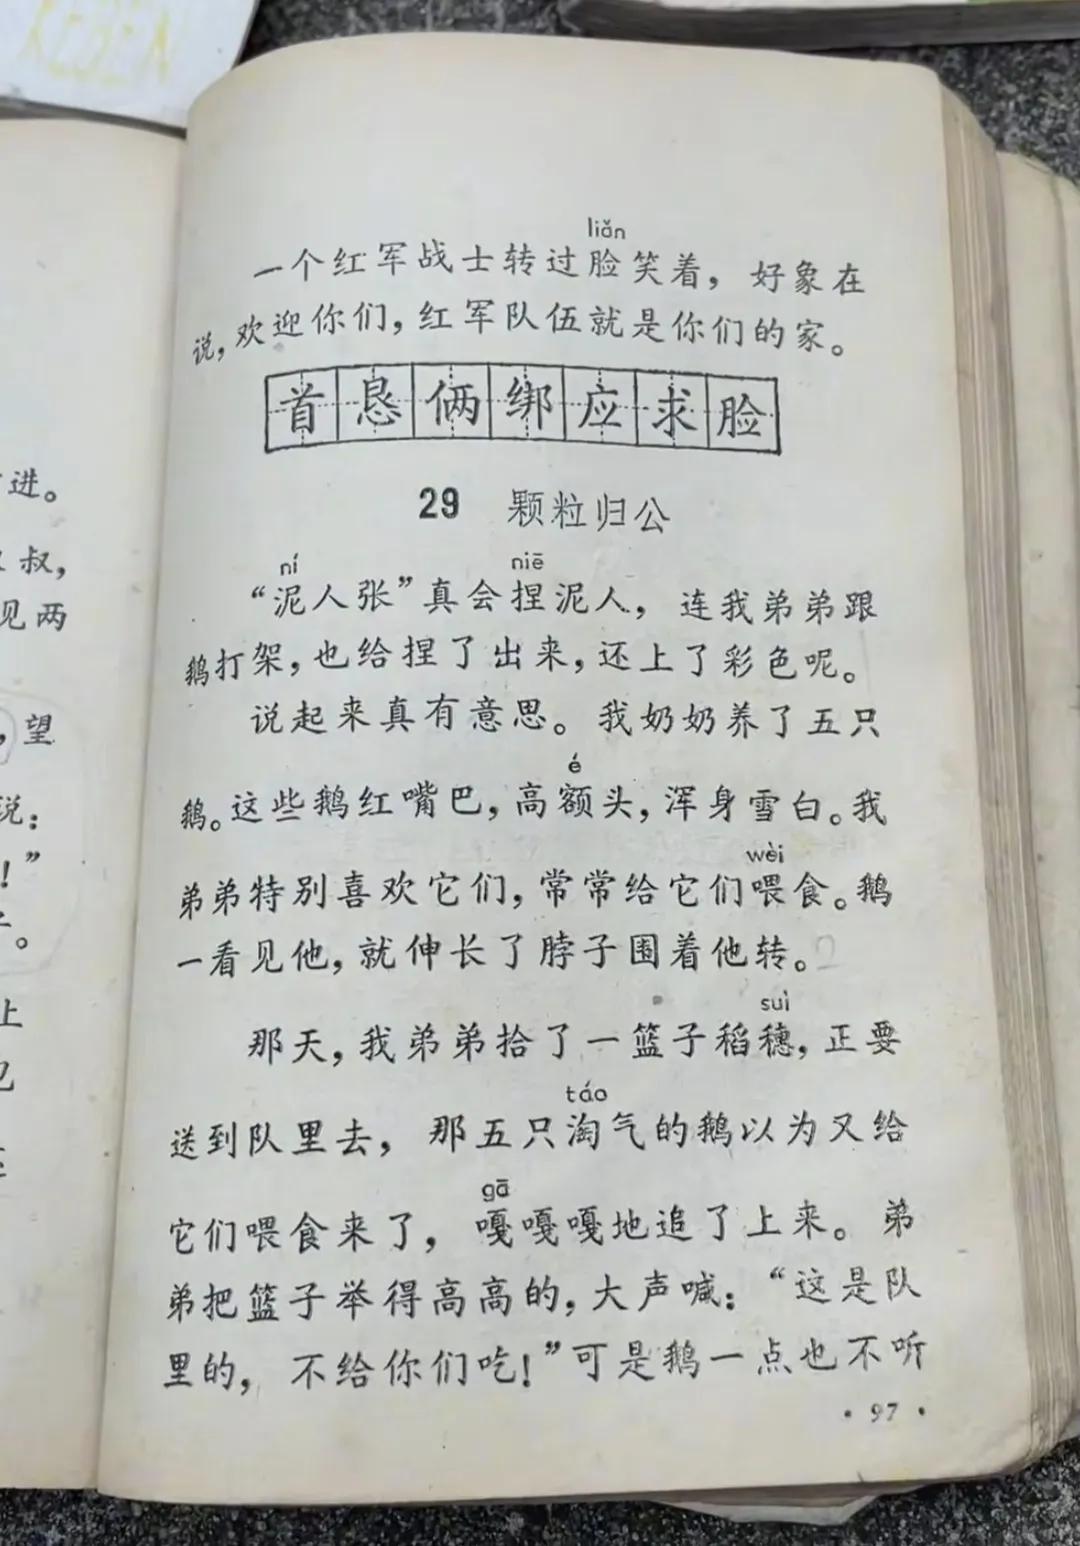 KEBEN
进。
叔,
见两
,望
说:
!”
。
上
liǎn
一个红军战士转过脸笑着，好象在
说，欢迎你们，红军队伍就是你们的家。
首恳俩绑应求脸
29 颗粒归公
ní niē
“泥人张”真会捏泥人，连我弟弟跟
鹅打架，也给捏了出来，还上了彩色呢。
说起来真有意思。我奶奶养了五只
é
鹅。这些鹅红嘴巴，高额头，浑身雪白。我
wèi
弟弟特别喜欢它们，常常给它们喂食。鹅
一看见他，就伸长了脖子围着他转。
suì
那天，我弟弟拾了一篮子稻穗，正要
táo
送到队里去，那五只淘气的鹅以为又给
gā
它们喂食来了，嘎嘎嘎地追了上来。弟
弟把篮子举得高高的，大声喊：“这是队
里的，不给你们吃！”可是鹅一点也不听
·97·